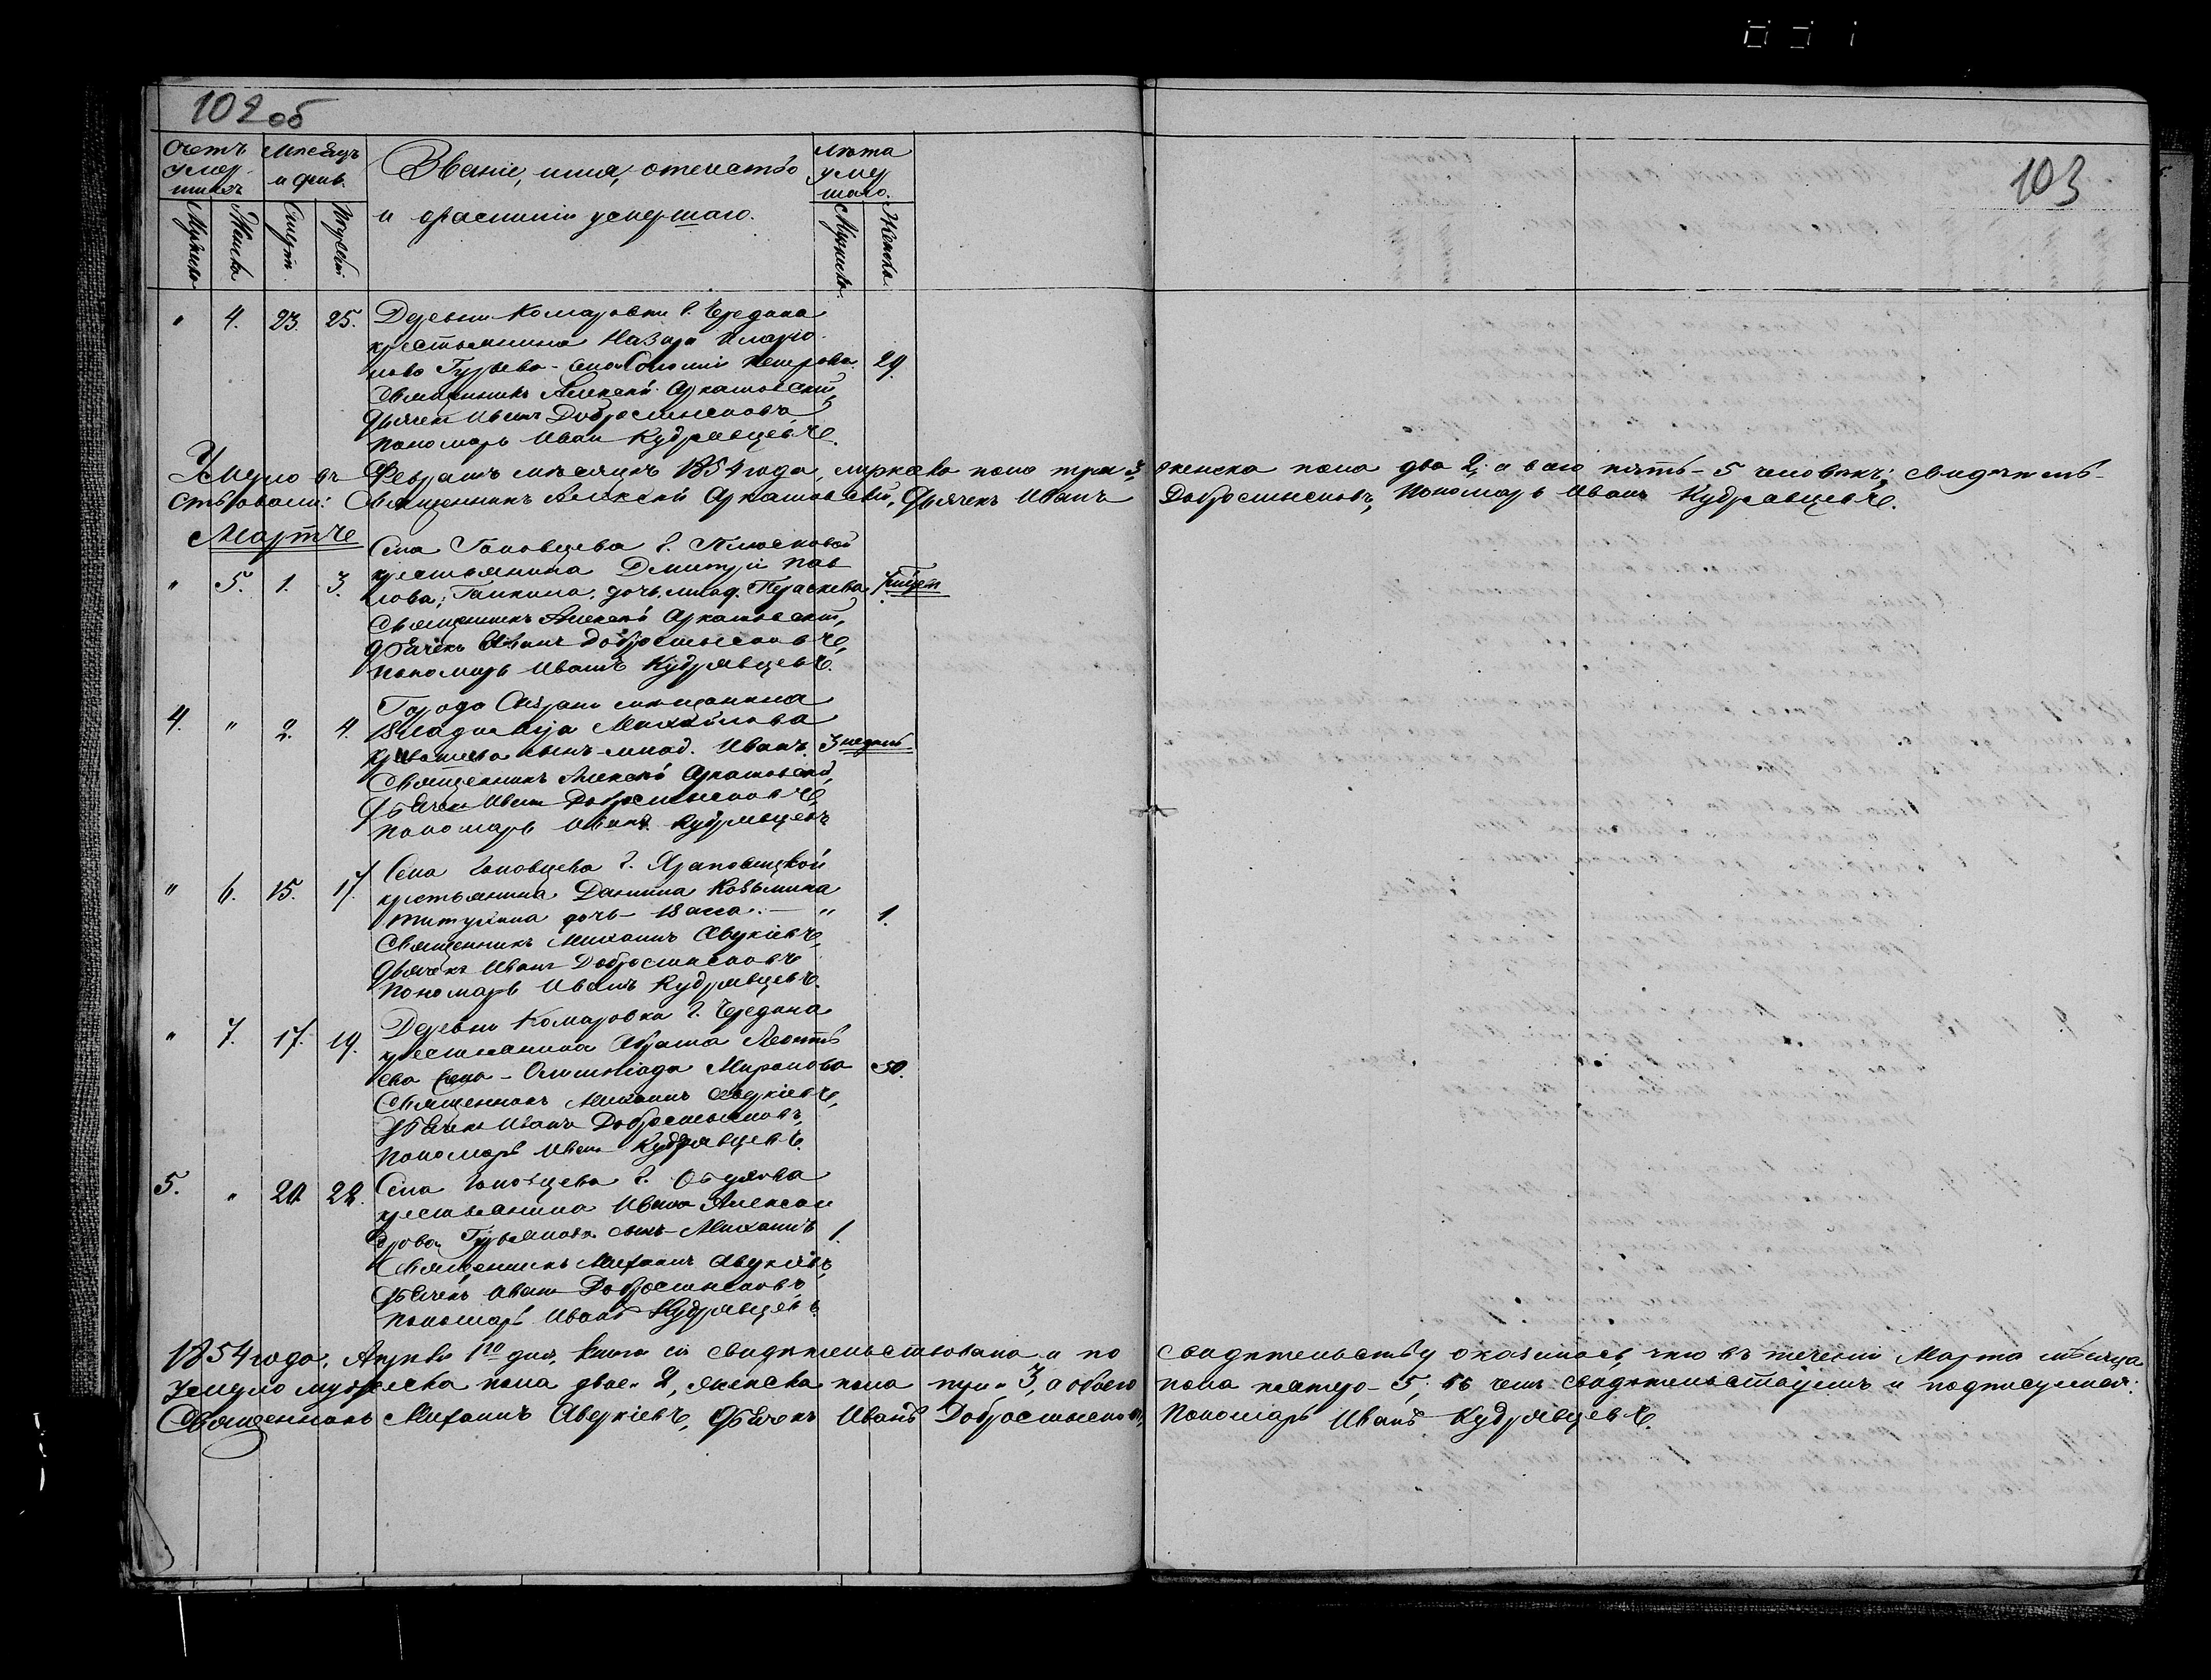 102 об
103
Счетъ умер-шихъ
Мужска
Женска
Месяцъ и день.
Смерт.
Погребе.
Званіе, имя, отчество
и фамилія умершаго.
Лѣта умер шаго.
Мужска.
Женска.
" 4. 23. 25. Деревни Комаровки г. Чередина
крестьянина Назара Иларіо
нова Гурьева - жена Соломонія Петрова. 29.
Священникъ Алексій
Дьячекъ Иванъ Добросмысловъ
Пономарь Иванъ Кудрявцевъ.
Умерло въ Февралѣ мѣсяцѣ 1854 года, мужска пола три 3, женска пола два 2, а всего пять - 5 человѣкъ; свидѣтель-
ствовали: Священникъ Алексій Дьячекъ Иванъ Добросмысловъ, Пономарь Иванъ Кудрявцевъ.
Мартъ
Села г.
" 5. 1. 3. крестьянина Дмитрія Пав
лова, Галкина, дочь млад. Параскева
Священникъ Алексій
Дьячекъ Иванъ Добросмысловъ,
Пономарь Иванъ Кудрявцевъ.
Города Сызрани мещанина
4. " 2. 4. Владиміра Михайлова
сынъ - млад. Иванъ. 3 недель
Священникъ Алексій
Дьячекъ Иванъ Добросмысловъ,
Пономарь Иванъ Кудрявцевъ
Села г.
" 6. 15. 17. крестьянина Даніила Козьмина
дочь - Васса. - " 1.
Священникъ Михаилъ Аверкіевъ,
Дьячекъ Иванъ Добросмысловъ
Пономарь Иванъ Кудрявцевъ.
Деревни Комаровка г. Чередина
" 7. 17. 19. крестьянина Абрама Леонтьь
ева жена - Олимпіада Миронова 50.
Священникъ Михаилъ Аверкіевъ,
Дьячекъ Иванъ Добросмысловъ,
Пономарь Иванъ Кудрявцевъ.
5. " 20. 22. Села г.
крестьянина Ивана Алексан
дрова, Гурьянова сынъ - Михаилъ 1.
Священникъ Михаилъ Аверкіевъ,
Дьячекъ Иванъ Добросмысловъ,
Пономарь Иванъ Кудрявцевъ.
1854 года, Апрѣля 1го дня, книга сія свидѣтельствована и по свидѣтельству оказалось, что въ теченіи Марта мѣсяца
умерло мужеска пола двое - 2, женска пола три - 3, а обоего пола пятеро - 5, въ чемъ свидѣтельствуемъ и подписуемся:
Священникъ Михаилъ Аверкіевъ, Дьячекъ Иванъ Добросмысловъ, Пономарь Иванъ Кудрявцевъ.